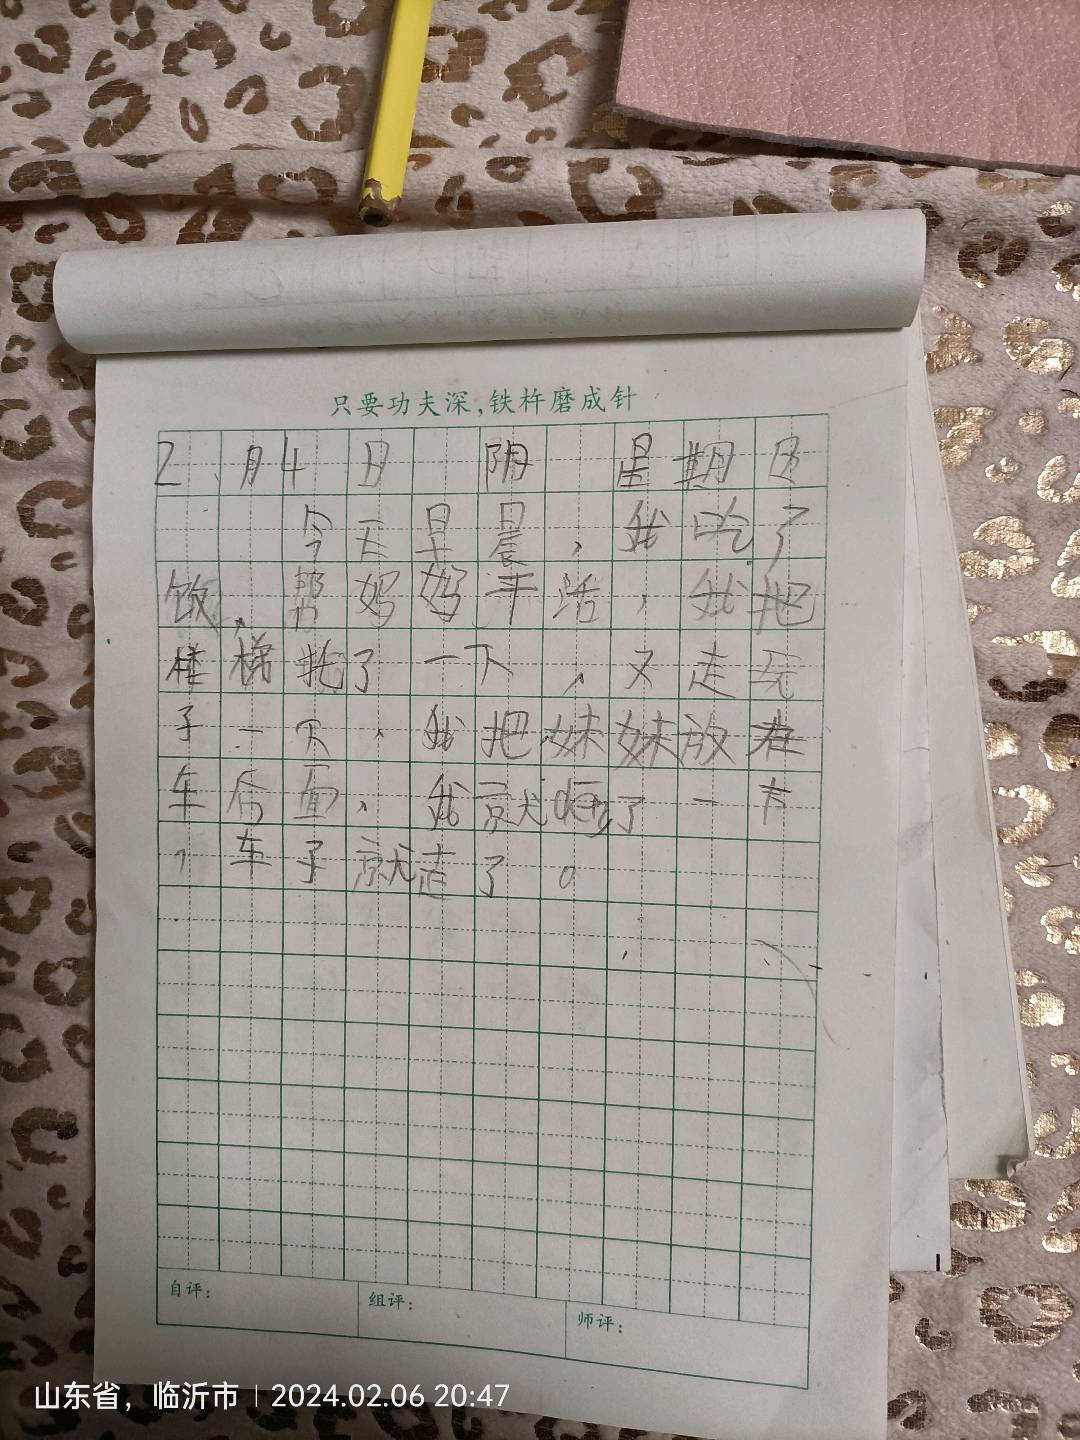 只要功夫深,铁杵磨成针
2月4日 阴 星期日
今天早晨,我吃了
饭,帮妈妈干活,我把
楼梯拖了一下,又走完
子一下,我把妹妹放在
车后面,我就了一声
,车子就走了。
自评:
组评:
师评:
山东省,临沂市 | 2024.02.06 20:47